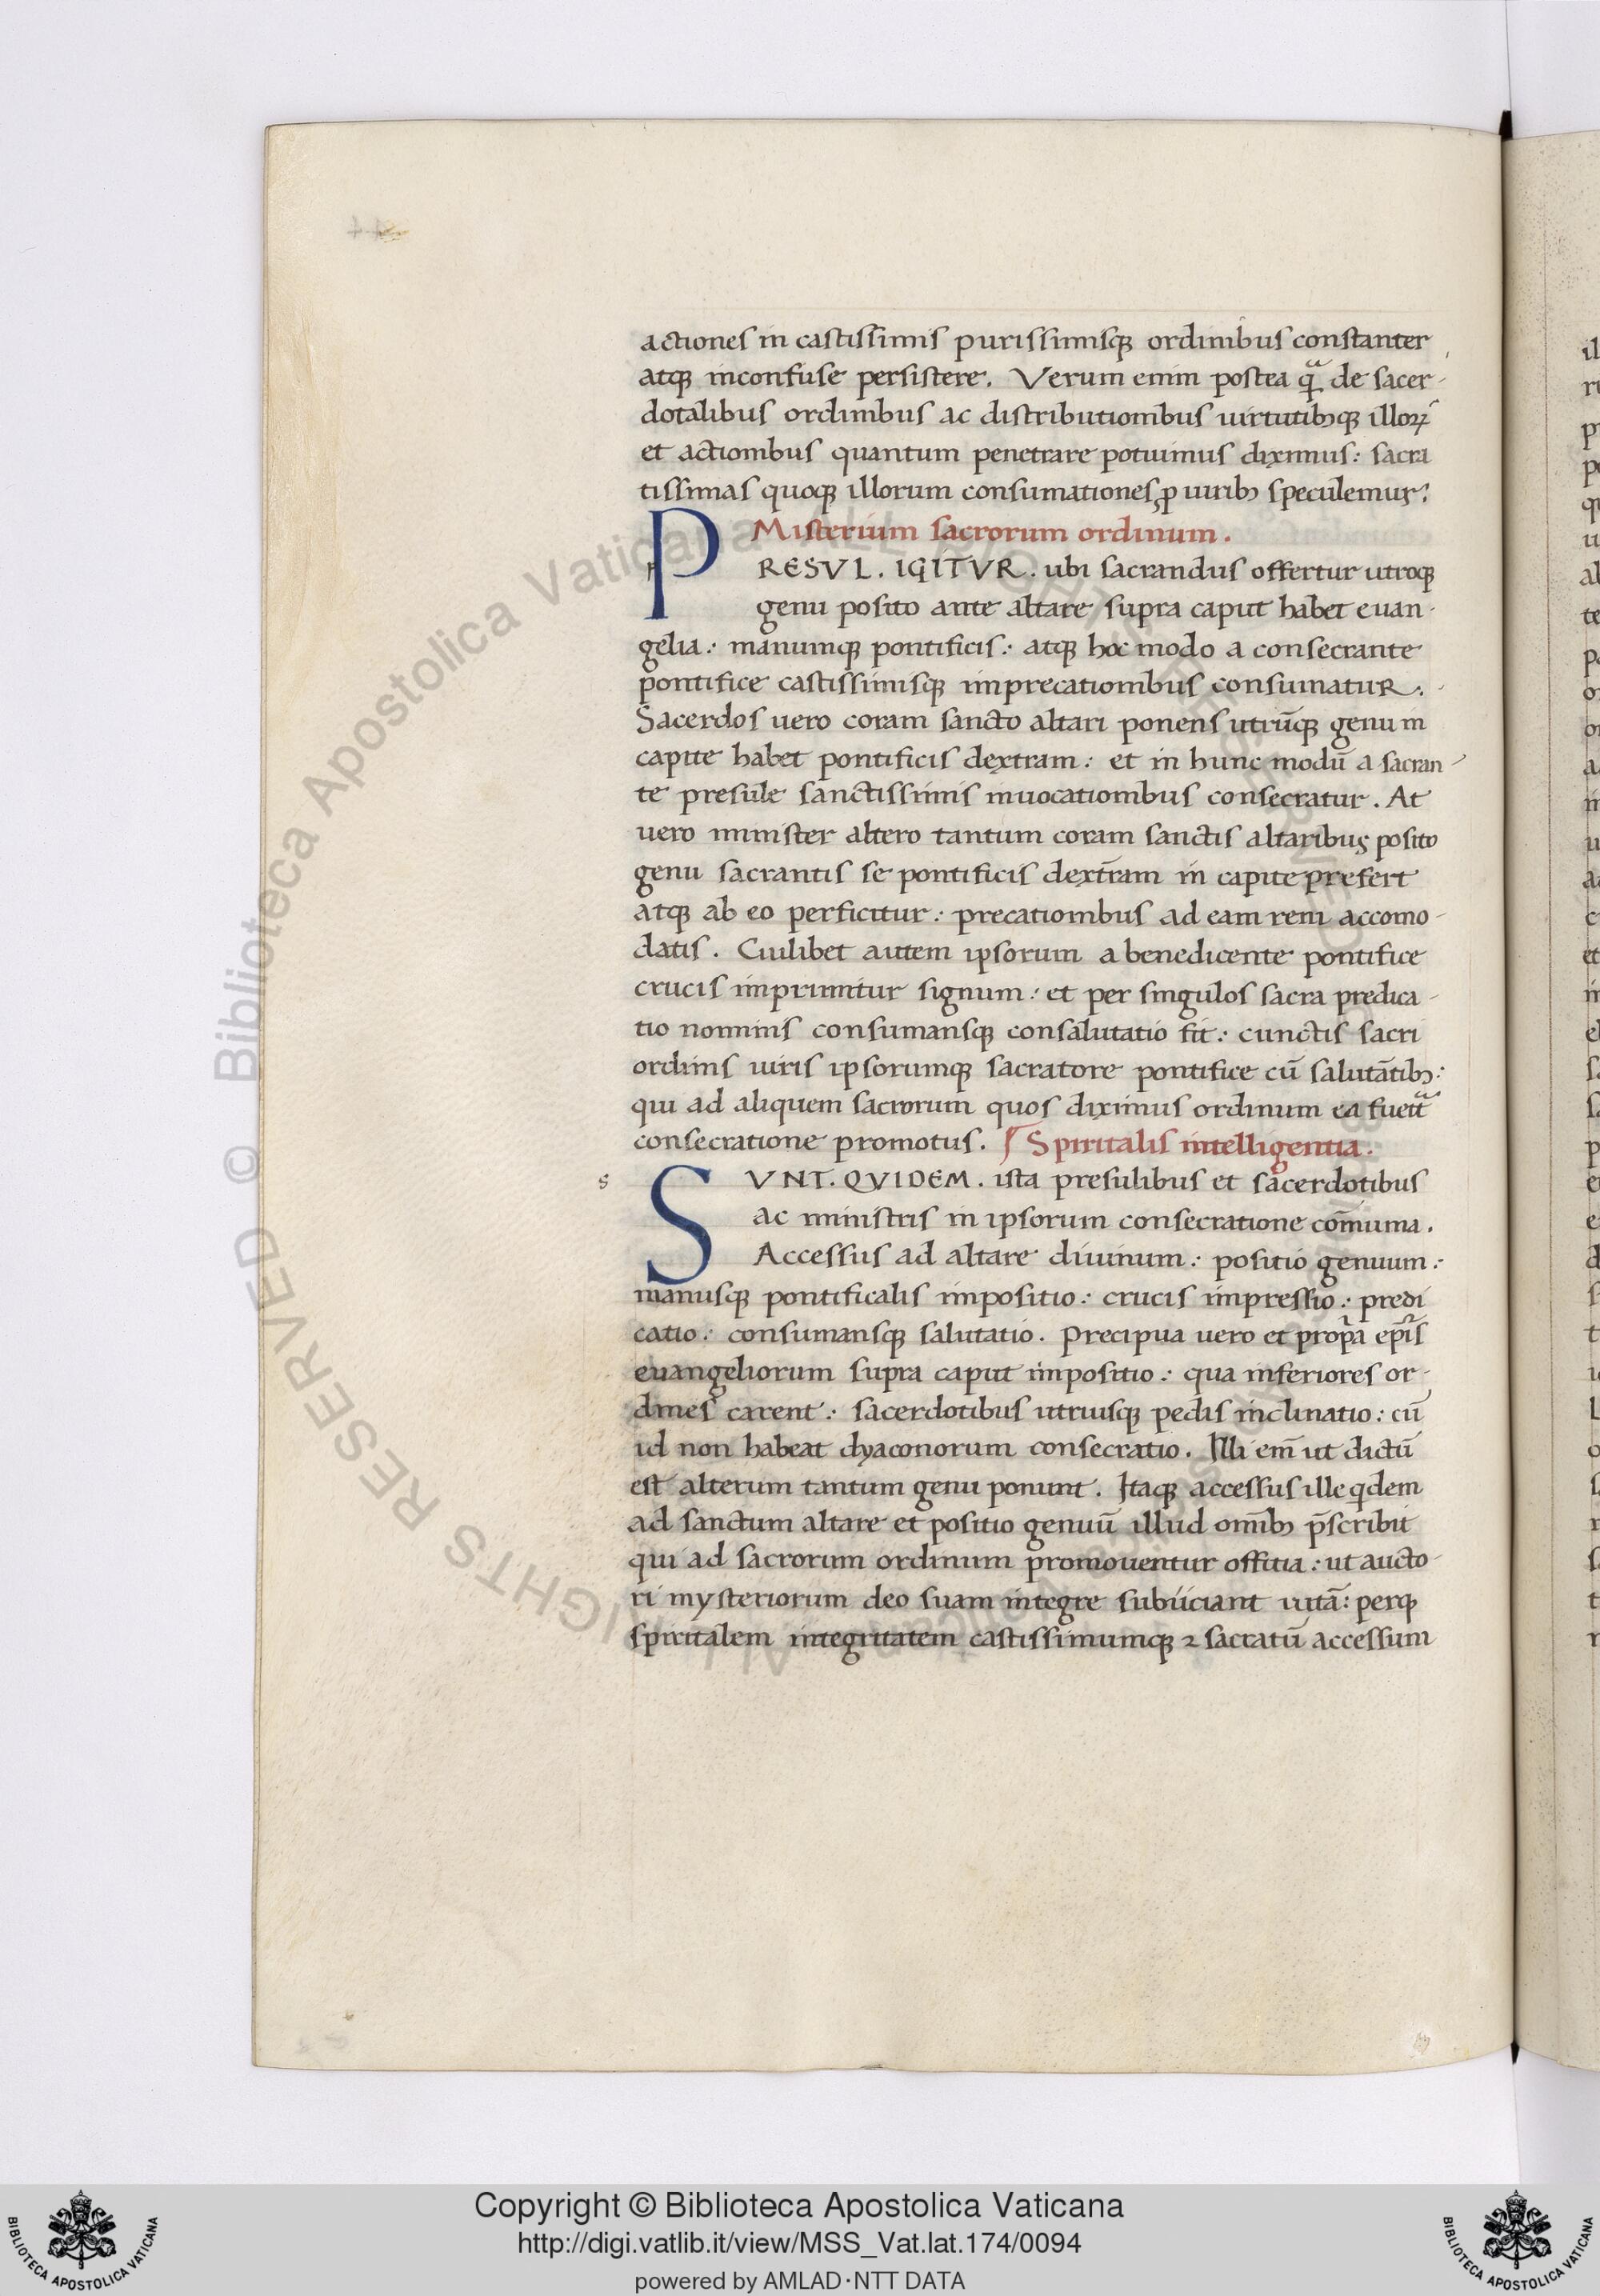 actiones in castissimis purissimisq; ordinibus constanter
atq; inconfuse persistere. Verum enim postea qᷓ de sacer-
dotalibus ordinibus ac distributionibus uirtutibꝫq; illoꝝ
et actionibus quantum penetrare potuimus diximus: sacra
tissimas quoq; illorum consumationes ꝓ uiribꝫ speculemur.
Misterium sacrorum ordinum.
PRESVL. IGITVR. ubi sacrandus offertur utroq;
genu posito ante altare supra caput habet euan-
gelia: manumq; pontificis: atq; hoc modo a consecrante
pontifice castissimisq; imprecationibus consumatur.
Sacerdos uero coram sancto altari ponens utrūq; genu in
capite habet pontificis dextram: et in hunc modū a sacran-
te presule sanctissimis inuocationibus consecratur. At
uero minister altero tantum coram sanctis altaribus posito
genu sacrantis se pontificis dextram in capite prefert
atq; ab eo perficitur: precationibus ad eam rem accomo-
datis. Cuilibet autem ipsorum a benedicente pontifice
crucis imprimitur signum: et per singulos sacra predica-
tio nominis consumansq; consalutatio fit: cunctis sacri
ordinis uiris ipsorumq; sacratore pontifice cū salutātibꝫ:
qui ad aliquem sacrorum quos diximus ordinum ea
consecratione promotus. Spiritalis intelligentia.
s
SVNT. QVIDEM. ista presulibus et sacerdotibus
ac ministris in ipsorum consecratione cōmunia.
Accessus ad altare diuinum: positio genuum:
manusq; pontificalis impositio: crucis impressio: predi
catio: consumansq; salutatio. Precipua uero et propͥa ep̄is
euangeliorum supra caput impositio: qua inferiores or-
dines carent: sacerdotibus utriusq; pedis inclinatio: cū
id non habeat dyaconorum consecratio. Illi em̄ ut dictū
est alterum tantum genu ponunt. Itaq; accessus ille qͥdem
ad sanctum altare et positio genuū illud om̄ibꝫ p̄scribit
qui ad sacrorum ordinum promouentur offitia: ut aucto-
ri mysteriorum deo suam integre subiiciant uitā: perq;
spiritalem integritatem castissimumq; ⁊ sacratū accessum
© Biblioteca Apostolica Vaticana ALL RIGHTS RESERVED
Copyright © Biblioteca Apostolica Vaticana
http://digi.vatlib.it/view/MSS_Vat.lat.174/0094
powered by AMLAD·NTT DATA
BIBLIOTECA APOSTOLICA VATICANA
BIBLIOTECA APOSTOLICA VATICANA